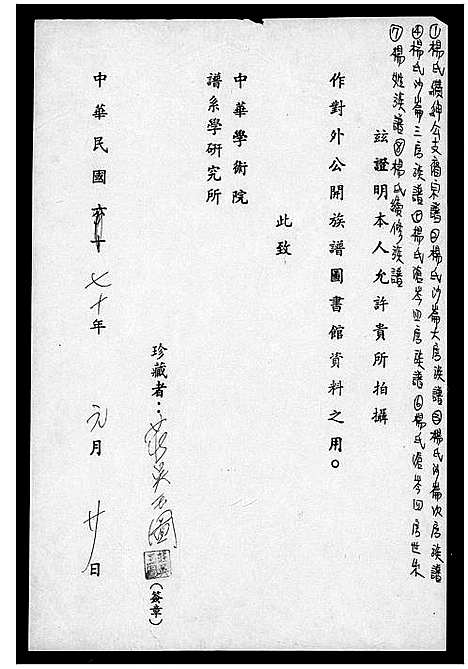 ①楊氏纘紳公支裔宗譜②楊氏沙崙大房族譜③楊氏沙崙次房族譜
④楊氏沙崙三房族譜⑤楊氏港岑四房族譜⑥楊氏港岑四房世系
⑦楊姓族譜⑧楊氏續修族譜
茲證明本人允許貴所拍攝
作對外公開族譜圖書館資料之用。
此致
中華學術院
譜系學研究所
珍藏者：
(簽章)
中華民國 七十年 元月 廿日